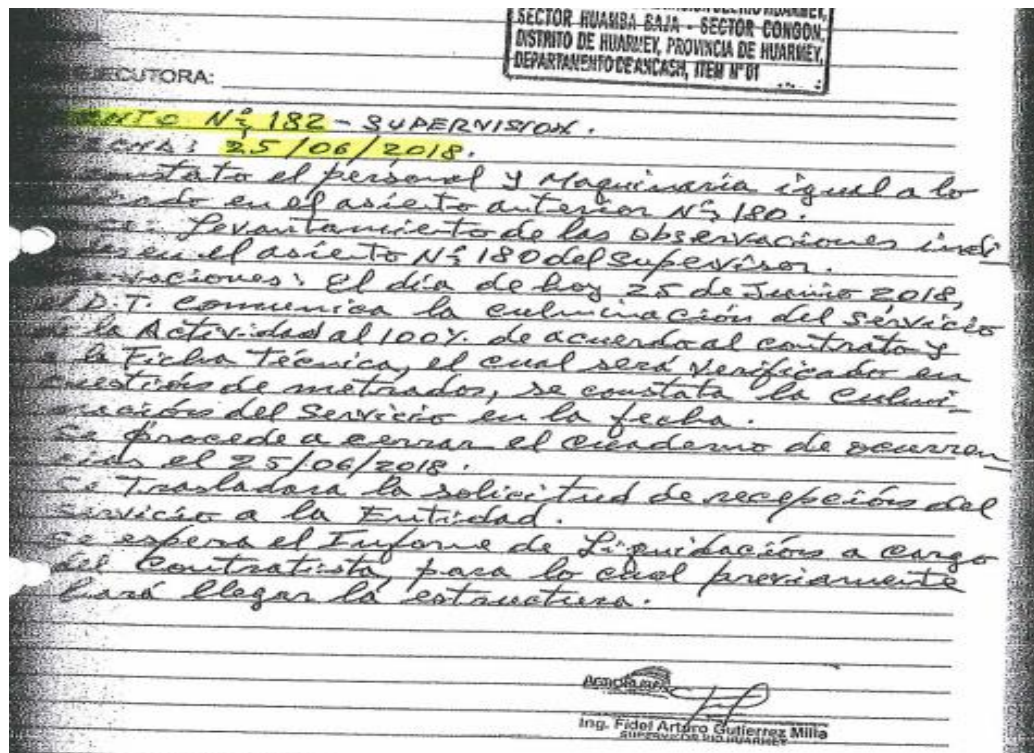 SECTOR HUAMBA BAJA - SECTOR CONGON,
DISTRITO DE HUARMEY, PROVINCIA DE HUARMEY,
DEPARTAMENTO DE ANCASH, ITEM N° 01
ECUTORA:
ENTO Nº 182 - SUPERVISION.
ECHA: 25/06/2018.
nstato el personal y Maquinaria igual a lo
icado en el asiento anterior Nº 180.
Levantamiento de las observaciones indi-
en el asiento Nº 180 del Supervisor.
vaciones: El día de hoy 25 de Junio 2018,
el D.T. comunica la culminación del Servicio
de la Actividad al 100% de acuerdo al contrato y
a la Ficha Técnica, el cual será verificado en
cuestión de metrados, se constata la culmi-
nación del Servicio en la fecha.
Se procede a cerrar el cuaderno de ocurren-
cias el 25/06/2018.
Se Trasladara la solicitud de recepción del
Servicio a la Entidad.
Se espera el Informe de Liquidación a cargo
del Contratista, para lo cual previamente
hará llegar la estructura.
Ing. Fidel Arturo Gutierrez Milla
SUPERVISOR RIO HUARMEY